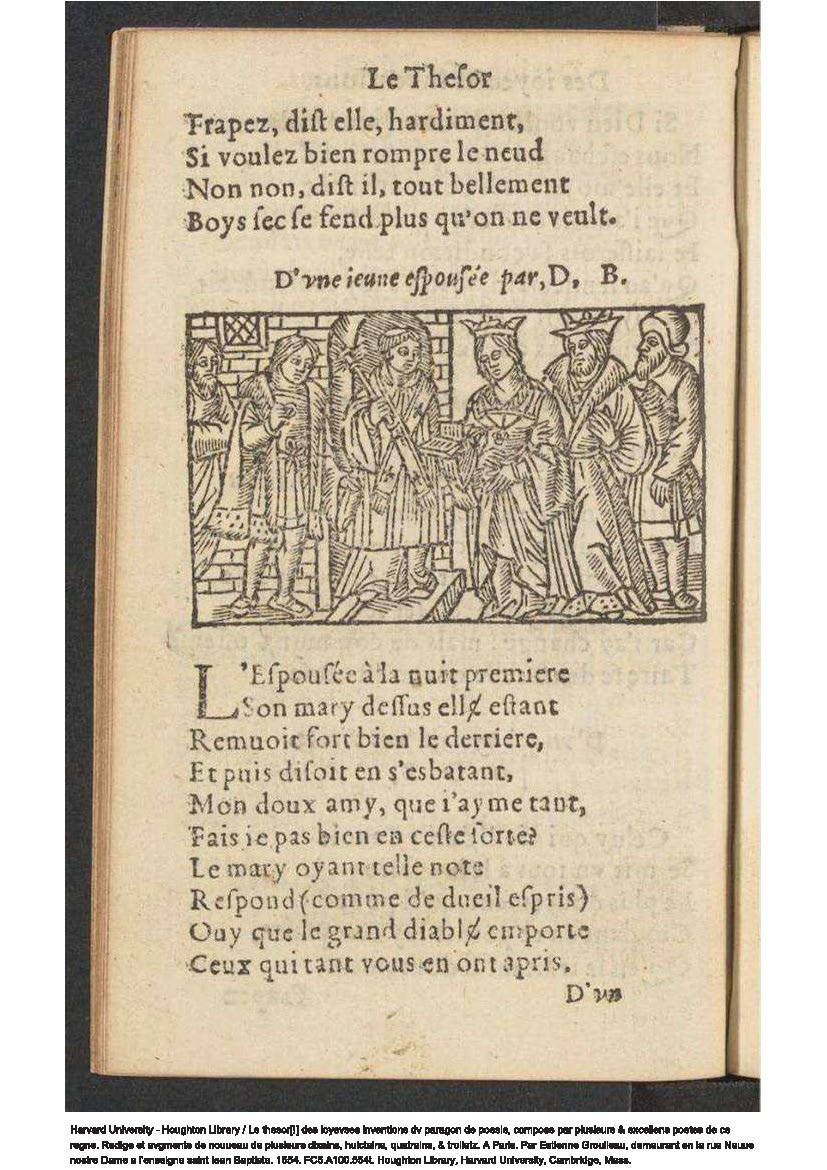 Le Theſor
Frapez, diſt elle, hardiment,
Si voulez bien rompre le neud
Non non, diſt il, tout bellement
Boys ſec ſe fend plus qu'on ne veult.
D'vne ieune eſpouſée par, D, B.
L'Eſpouſée à la nuit premiere
Son mary deſſus ellɇ eſtant
Remuoit fort bien le derriere,
Et puis diſoit en s'esbatant,
Mon doux amy, que i'ayme tant,
Fais ie pas bien en ceſte ſorte?
Le mary oyant telle note
Reſpond (comme de dueil eſpris)
Ouy que le grand diablɇ emporte
Ceux qui tant vous en ont apris.
D'vn
Harvard University - Houghton Library / Le thesor[!] des ioyevses inventions dv paragon de poesie, compose par plusieurs & excellens poetes de ce
regne. Redige et avgmente de nouueau de plusieurs dixains, huictains, quatrains, & trolletz. A Paris. Par Estienne Groulleau, demeurant en la rue Neuue
nostre Dame a l'enseigne saint Iean Baptiste. 1554. FC5.A100.554t. Houghton Library, Harvard University, Cambridge, Mass.